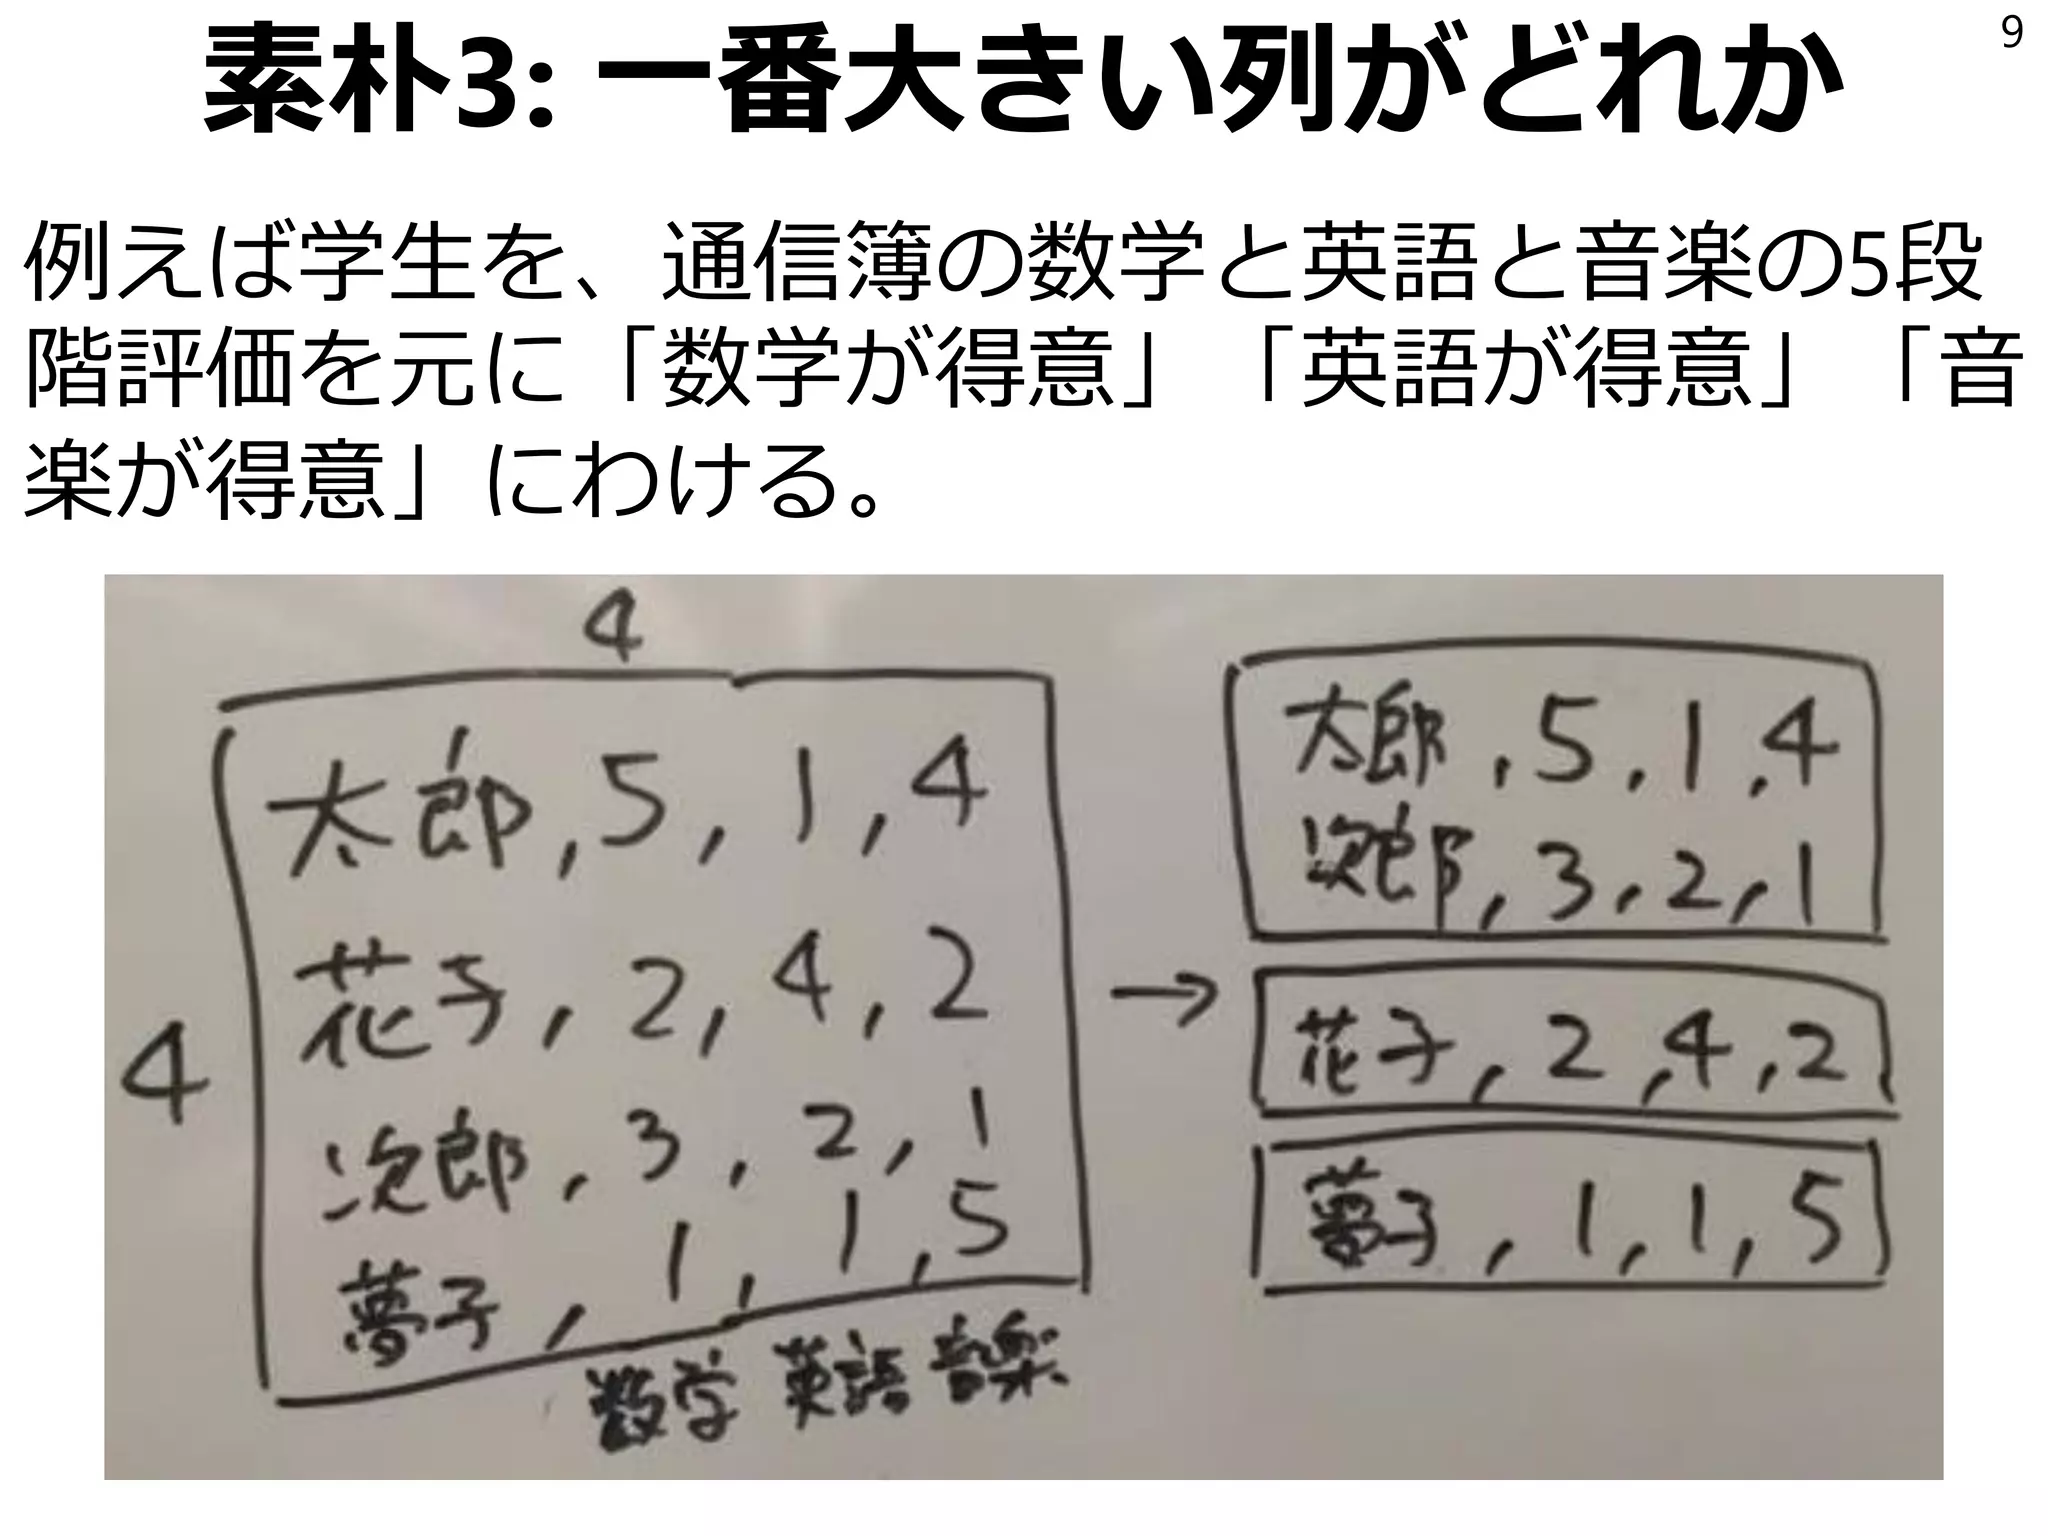 9
素朴3: 一番大きい列がどれか
例えば学生を、通信簿の数学と英語と音楽の5段
階評価を元に「数学が得意」「英語が得意」「音
楽が得意」にわける。
4
4
太郎,5,1,4
花子,2,4,2
次郎,3,2,1
夢子,1,1,5
数学 英語 音楽
→
太郎,5,1,4
次郎,3,2,1
花子,2,4,2
夢子,1,1,5